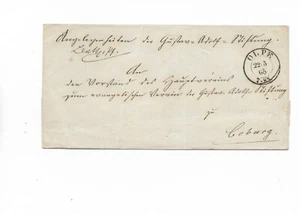 Angelegenheiten der Gustav-Adolf-Stiftung.
OLPE
22 5
An
den Vorstand des Hauptvereins
zum evangelischen Verein der Gustav-Adolf-Stiftung
Coburg.